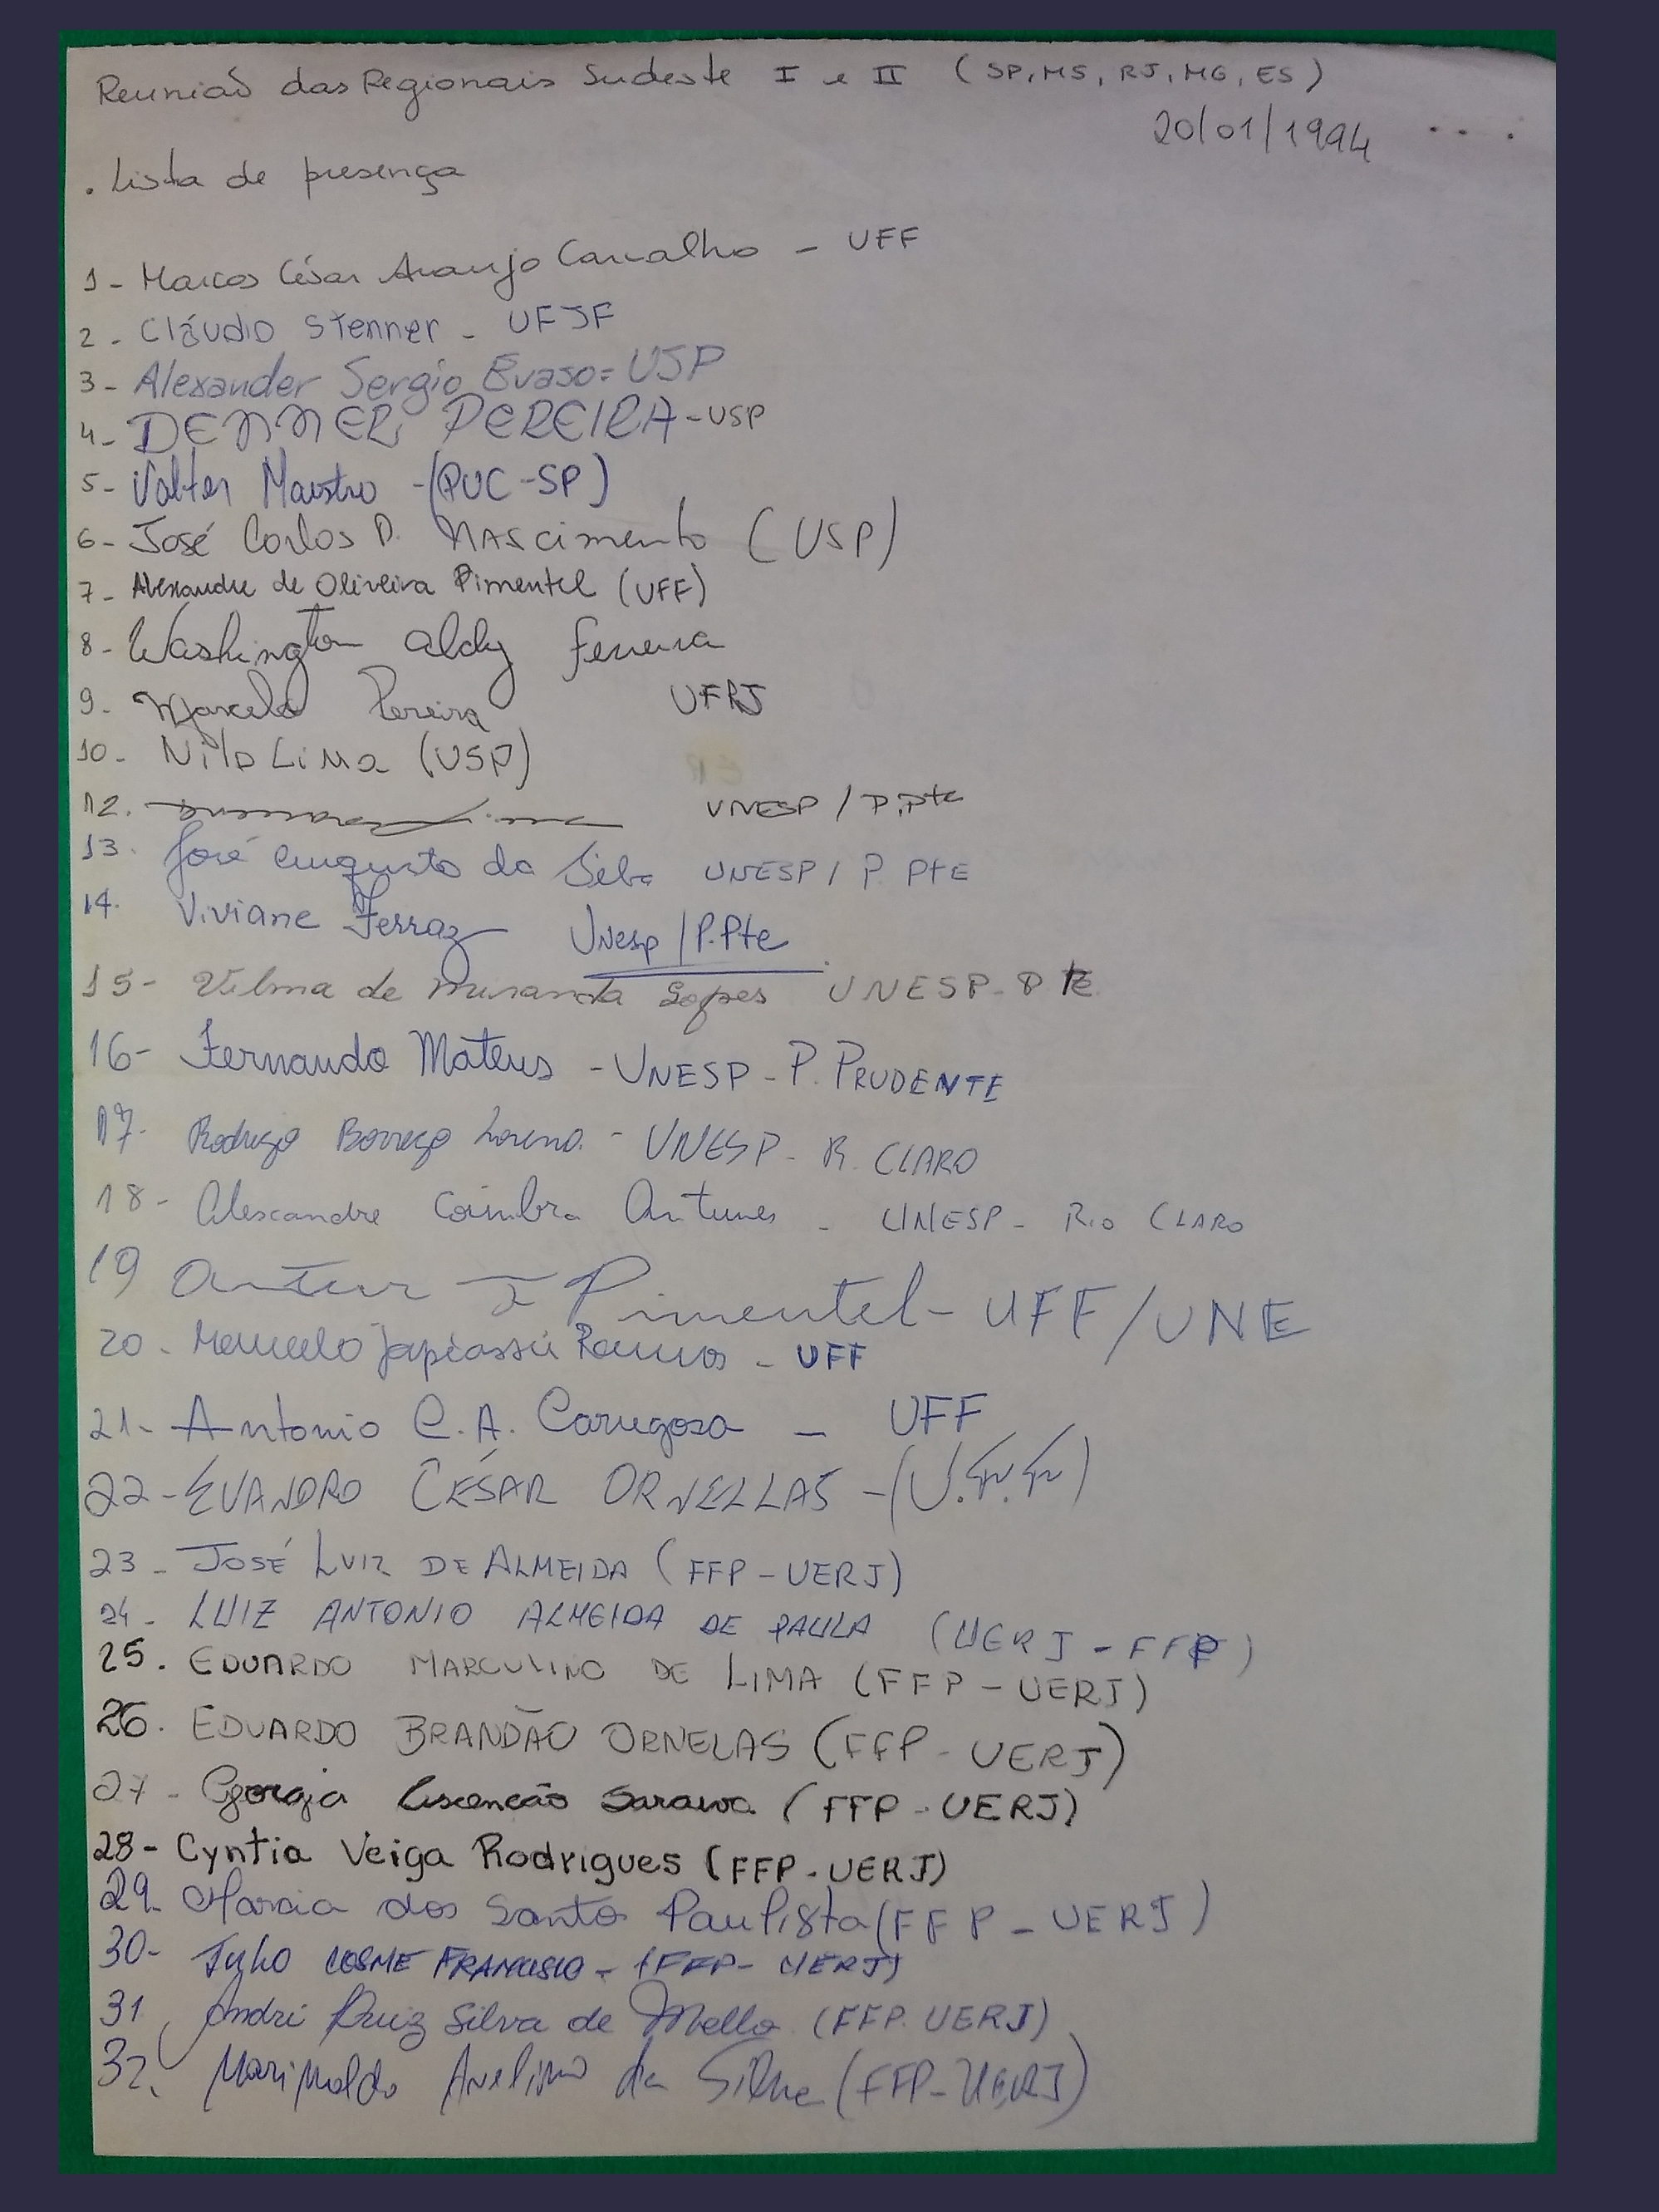 Reunião das Regionais Sudeste I e II (SP, MS, RJ, MG, ES)
20/01/1994
. Lista de presença
1- Marcos César Araujo Carvalho - UFF
2. Cláudio Stenner - UFJF
3- Alexander Sergio Evaso= USP
4- DENNER PEREIRA - USP
5- Valter Maestro - (PUC-SP)
6- José Carlos D. NAScimento (USP)
7- Alexandre de Oliveira Pimentel (UFF)
8- Washington Aldy Ferreira
9- Marcelo Pereira UFRJ
10- Nilo Lima (USP)
12. UNESP / P.Pte
13. José Augusto da Silva UNESP / P. PtE
14. Viviane Ferraz Unesp / P.Pte
15- Vilma de Miranda Lopes UNESP - P Pte
16- Fernando Mateus - UNESP - P. PRUDENTE
17- Rodrigo Borrego - UNESP - R. CLARO
18- Alexandre Coimbra Antunes - UNESP - Rio CLARO
19 Artur J Pimentel - UFF/UNE
20- Marcelo Japiassú Ramos - UFF
21- Antonio C.A. Carugosa - UFF
22- EVANDRO CÉSAR ORNELLAS - (U.F.F)
23- JOSÉ LUIZ DE ALMEIDA (FFP - UERJ)
24- LUIZ ANTONIO ALMEIDA DE PAULA (UERJ - FFP)
25. EDUARDO MARCULINO DE LIMA (FFP - UERJ)
26. EDUARDO BRANDÃO ORNELAS (FFP - UERJ)
27- Georgia Ascencão Saraiva (FFP - UERJ)
28- Cyntia Veiga Rodrigues (FFP - UERJ)
29- Marcia dos Santos Paulista (FFP - UERJ)
30- Julho COSME FRANCISCO - (FFP - UERJ)
31, André Ruiz Silva de Mello (FFP. UERJ)
32. Marinaldo Avelino da Silva (FFP - UERJ)